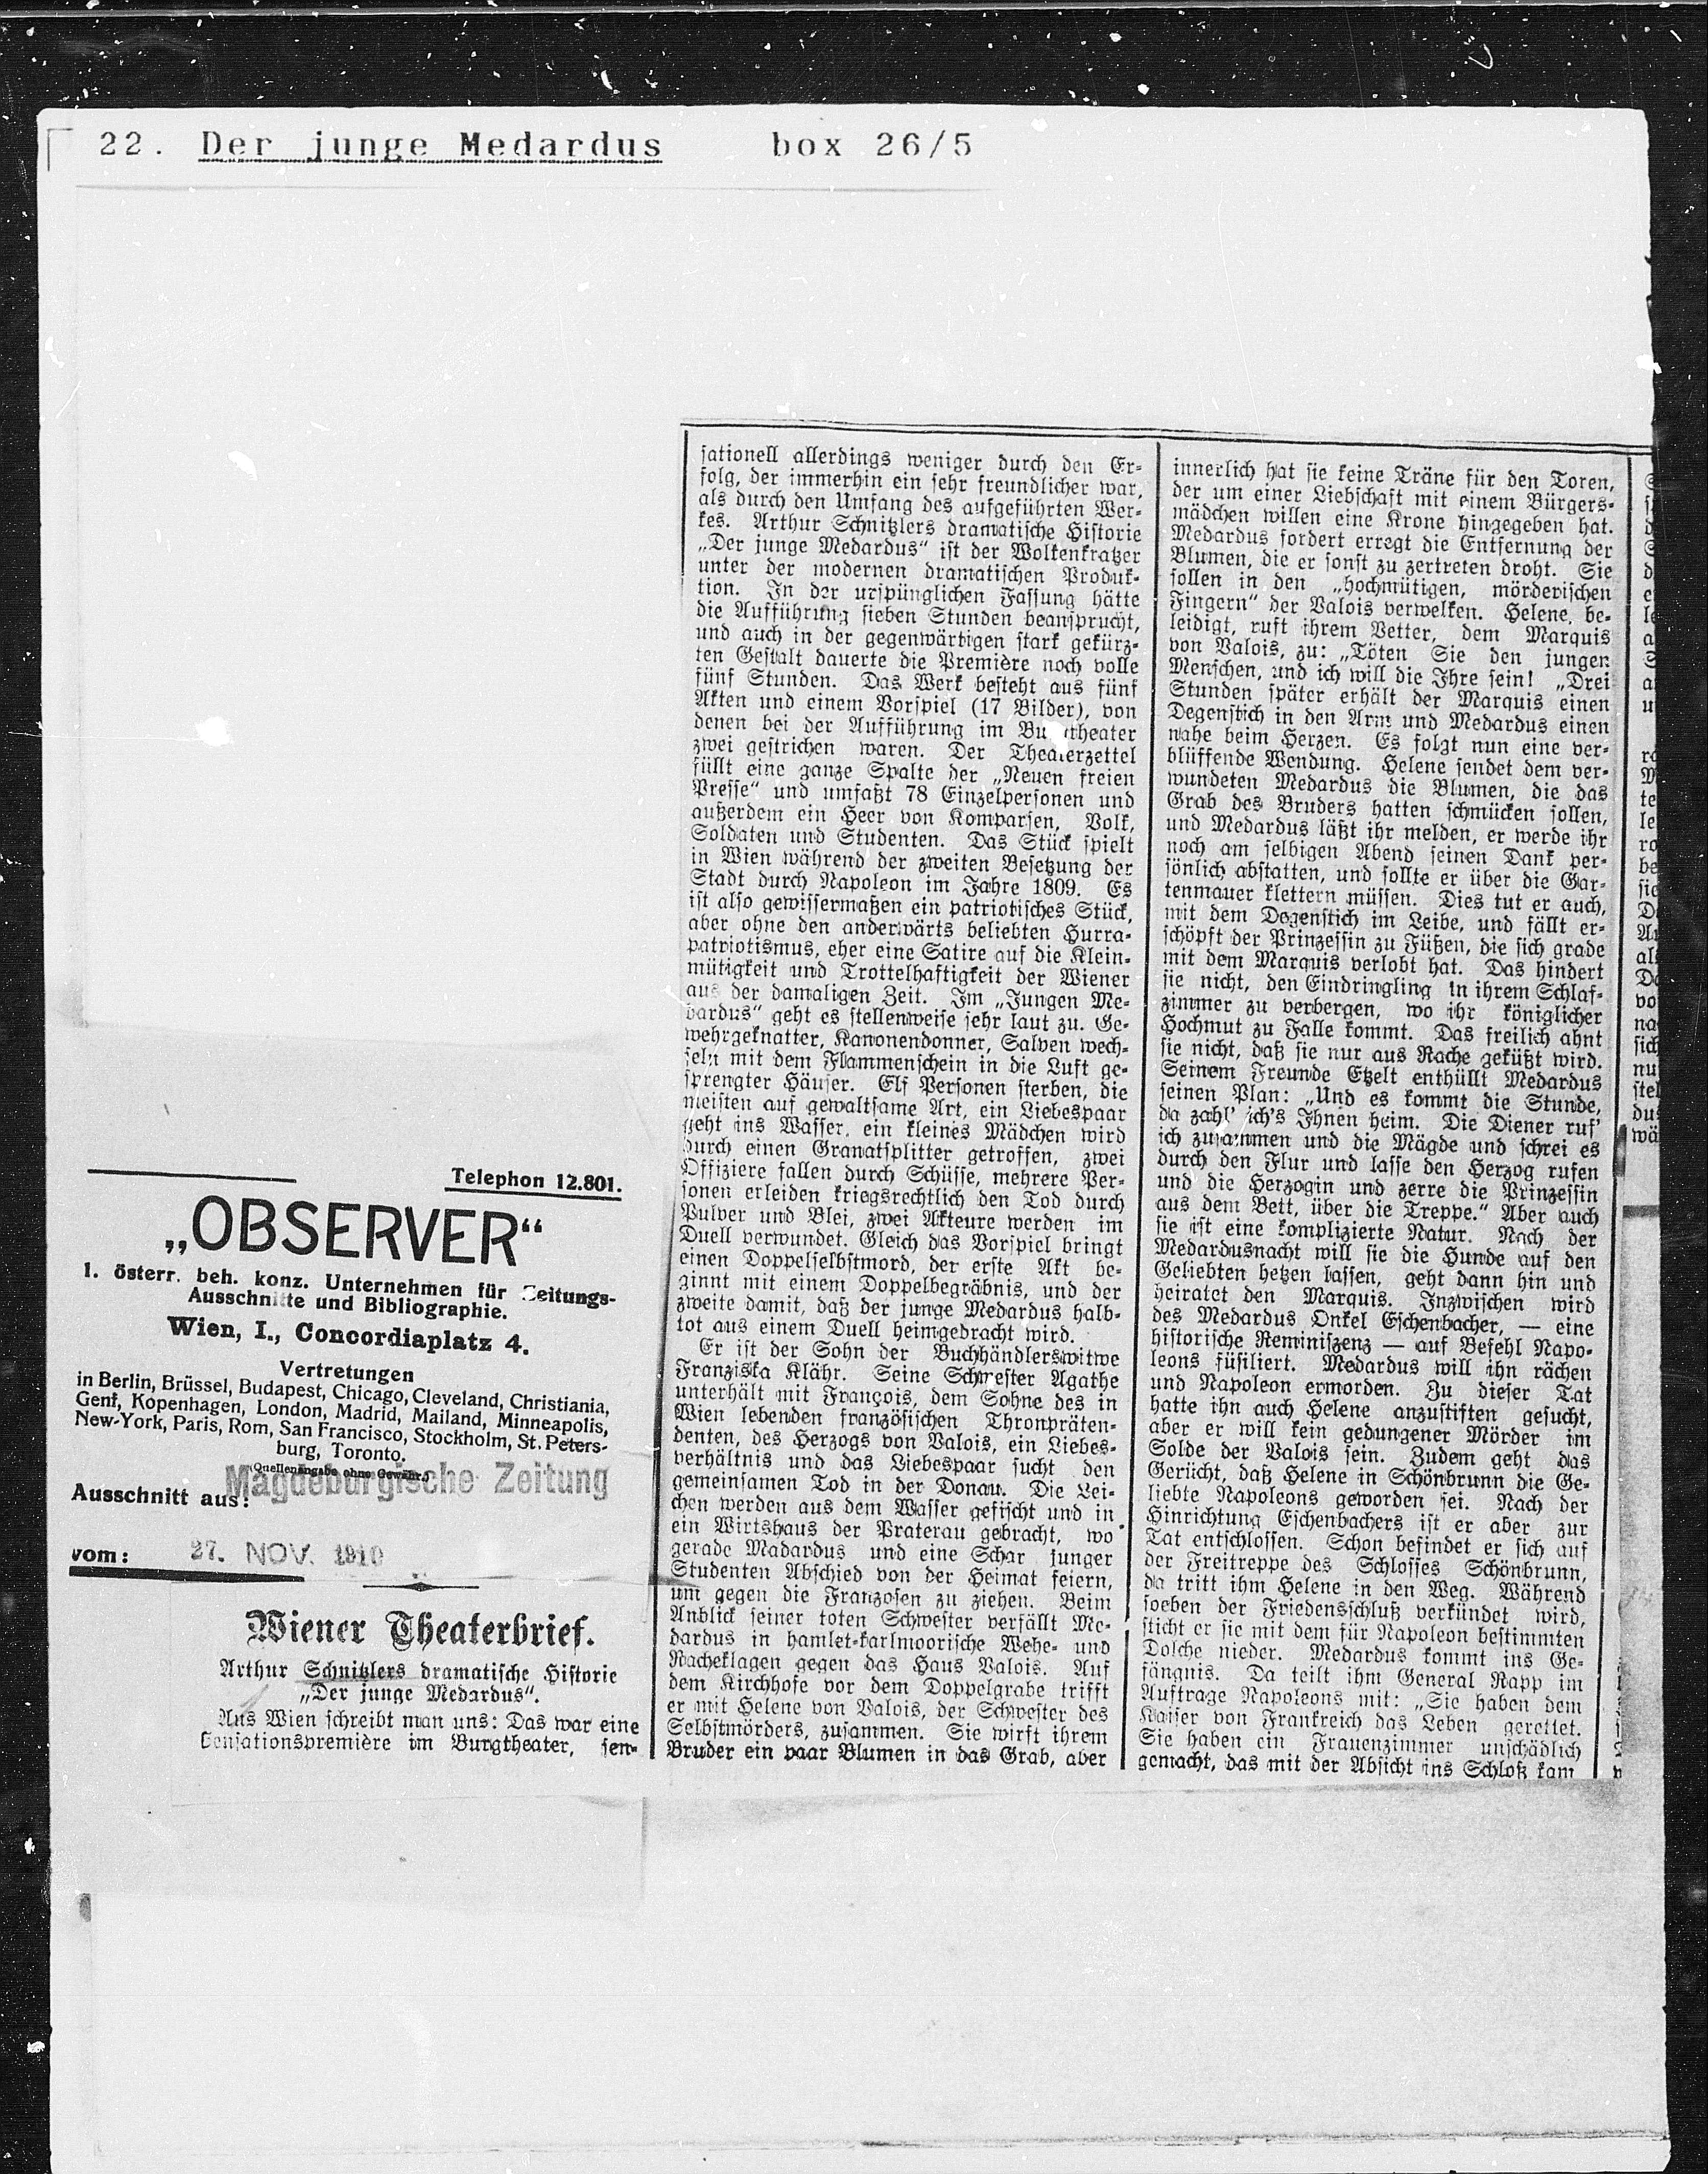 22. Der junge Medardus box 26/5
Telephon 12.801.
„OBSERVER“
I. österr. beh. konz. Unternehmen für Zeitungs-
Ausschnitte und Bibliographie.
Wien, I., Concordiaplatz 4.
Vertretungen
in Berlin, Brüssel, Budapest, Chicago, Cleveland, Christiania,
Genf, Kopenhagen, London, Madrid, Mailand, Minneapolis,
New-York, Paris, Rom, San Francisco, Stockholm, St. Peters-
burg, Toronto.
(Quellenangabe ohne Gewähr.)
Ausschnitt aus: Magdeburgische Zeitung
vom: 27. NOV. 1910
Wiener Theaterbrief.
Arthur Schnitzlers dramatische Historie
„Der junge Medardus“.
Aus Wien schreibt man uns: Das war eine
Sensationspremière im Burgtheater, sen-
sationell allerdings weniger durch den Er-
folg, der immerhin ein sehr freundlicher war,
als durch den Umfang des aufgeführten Wer-
kes. Arthur Schnitzlers dramatische Historie
„Der junge Medardus“ ist der Wolkenkratzer
unter der modernen dramatischen Produk-
tion. In der urspünglichen Fassung hätte
die Aufführung sieben Stunden beansprucht,
und auch in der gegenwärtigen stark gekürz-
ten Gestalt dauerte die Première noch volle
fünf Stunden. Das Werk besteht aus fünf
Akten und einem Vorspiel (17 Bilder), von
denen bei der Aufführung im Burgtheater
zwei gestrichen waren. Der Theaterzettel
füllt eine ganze Spalte der „Neuen freien
Presse“ und umfaßt 78 Einzelpersonen und
außerdem ein Heer von Komparsen, Volk,
Soldaten und Studenten. Das Stück spielt
in Wien während der zweiten Besetzung der
Stadt durch Napoleon im Jahre 1809. Es
ist also gewissermaßen ein patriotisches Stück,
aber ohne den anderwärts beliebten Hurra-
patriotismus, eher eine Satire auf die Klein-
mütigkeit und Trottelhaftigkeit der Wiener
aus der damaligen Zeit. Im „Jungen Me-
dardus“ geht es stellenweise sehr laut zu. Ge-
wehrgeknatter, Kanonendonner, Salven wech-
seln mit dem Flammenschein in die Luft ge-
sprengter Häuser. Elf Personen sterben, die
meisten auf gewaltsame Art, ein Liebespaar
geht ins Wasser, ein kleines Mädchen wird
durch einen Granatsplitter getroffen, zwei
Offiziere fallen durch Schüsse, mehrere Per-
sonen erleiden kriegsrechtlich den Tod durch
Pulver und Blei, zwei Akteure werden im
Duell verwundet. Gleich das Vorspiel bringt
einen Doppelselbstmord, der erste Akt be-
ginnt mit einem Doppelbegräbnis, und der
zweite damit, daß der junge Medardus halb-
tot aus einem Duell heimgebracht wird.
Er ist der Sohn der Buchhändlerswitwe
Franziska Klähr. Seine Schwester Agathe
unterhält mit François, dem Sohne des in
Wien lebenden französischen Thronpräten-
denten, des Herzogs von Valois, ein Liebes-
verhältnis und das Liebespaar sucht den
gemeinsamen Tod in der Donau. Die Lei-
chen werden aus dem Wasser gefischt und in
ein Wirtshaus der Praterau gebracht, wo
gerade Madardus und eine Schar junger
Studenten Abschied von der Heimat feiern,
um gegen die Franzosen zu ziehen. Beim
Anblick seiner toten Schwester verfällt Me-
dardus in hamlet-karlmoorische Wehe- und
Racheklagen gegen das Haus Valois. Auf
dem Kirchhofe vor dem Doppelgrabe trifft
er mit Helene von Valois, der Schwester des
Selbstmörders, zusammen. Sie wirft ihrem
Bruder ein paar Blumen in das Grab, aber
innerlich hat sie keine Träne für den Toren,
der um einer Liebschaft mit einem Bürgers-
mädchen willen eine Krone hingegeben hat.
Medardus fordert erregt die Entfernung der
Blumen, die er sonst zu zertreten droht. Sie
sollen in den „hochmütigen, mörderischen
Fingern“ der Valois verwelken. Helene, be-
leidigt, ruft ihrem Vetter, dem Marquis
von Valois, zu: „Töten Sie den jungen
Menschen, und ich will die Ihre sein! „Drei
Stunden später erhält der Marquis einen
Degenstich in den Arm und Medardus einen
nahe beim Herzen. Es folgt nun eine ver-
blüffende Wendung. Helene sendet dem ver-
wundeten Medardus die Blumen, die das
Grab des Bruders hatten schmücken sollen,
und Medardus läßt ihr melden, er werde ihr
noch am selbigen Abend seinen Dank per-
sönlich abstatten, und sollte er über die Gar-
tenmauer klettern müssen. Dies tut er auch,
mit dem Degenstich im Leibe, und fällt er-
schöpft der Prinzessin zu Füßen, die sich grade
mit dem Marquis verlobt hat. Das hindert
sie nicht, den Eindringling in ihrem Schlaf-
zimmer zu verbergen, wo ihr königlicher
Hochmut zu Falle kommt. Das freilich ahnt
sie nicht, daß sie nur aus Rache geküßt wird.
Seinem Freunde Etzelt enthüllt Medardus
seinen Plan: „Und es kommt die Stunde,
da zahl' ich's Ihnen heim. Die Diener ruf'
ich zusammen und die Mägde und schrei es
durch den Flur und lasse den Herzog rufen
und die Herzogin und zerre die Prinzessin
aus dem Bett, über die Treppe.“ Aber auch
sie ist eine komplizierte Natur. Nach der
Medardusnacht will sie die Hunde auf den
Geliebten hetzen lassen, geht dann hin und
heiratet den Marquis. Inzwischen wird
des Medardus Onkel Eschenbacher, — eine
historische Reminiszenz — auf Befehl Napo-
leons füsiliert. Medardus will ihn rächen
und Napoleon ermorden. Zu dieser Tat
hatte ihn auch Helene anzustiften gesucht,
aber er will kein gedungener Mörder im
Solde der Valois sein. Zudem geht das
Gerücht, daß Helene in Schönbrunn die Ge-
liebte Napoleons geworden sei. Nach der
Hinrichtung Eschenbachers ist er aber zur
Tat entschlossen. Schon befindet er sich auf
der Freitreppe des Schlosses Schönbrunn,
da tritt ihm Helene in den Weg. Während
soeben der Friedensschluß verkündet wird,
sticht er sie mit dem für Napoleon bestimmten
Dolche nieder. Medardus kommt ins Ge-
fängnis. Da teilt ihm General Rapp im
Auftrage Napoleons mit: „Sie haben dem
Kaiser von Frankreich das Leben gerettet.
Sie haben ein Frauenzimmer unschädlich
gemacht, das mit der Absicht ins Schloß kam